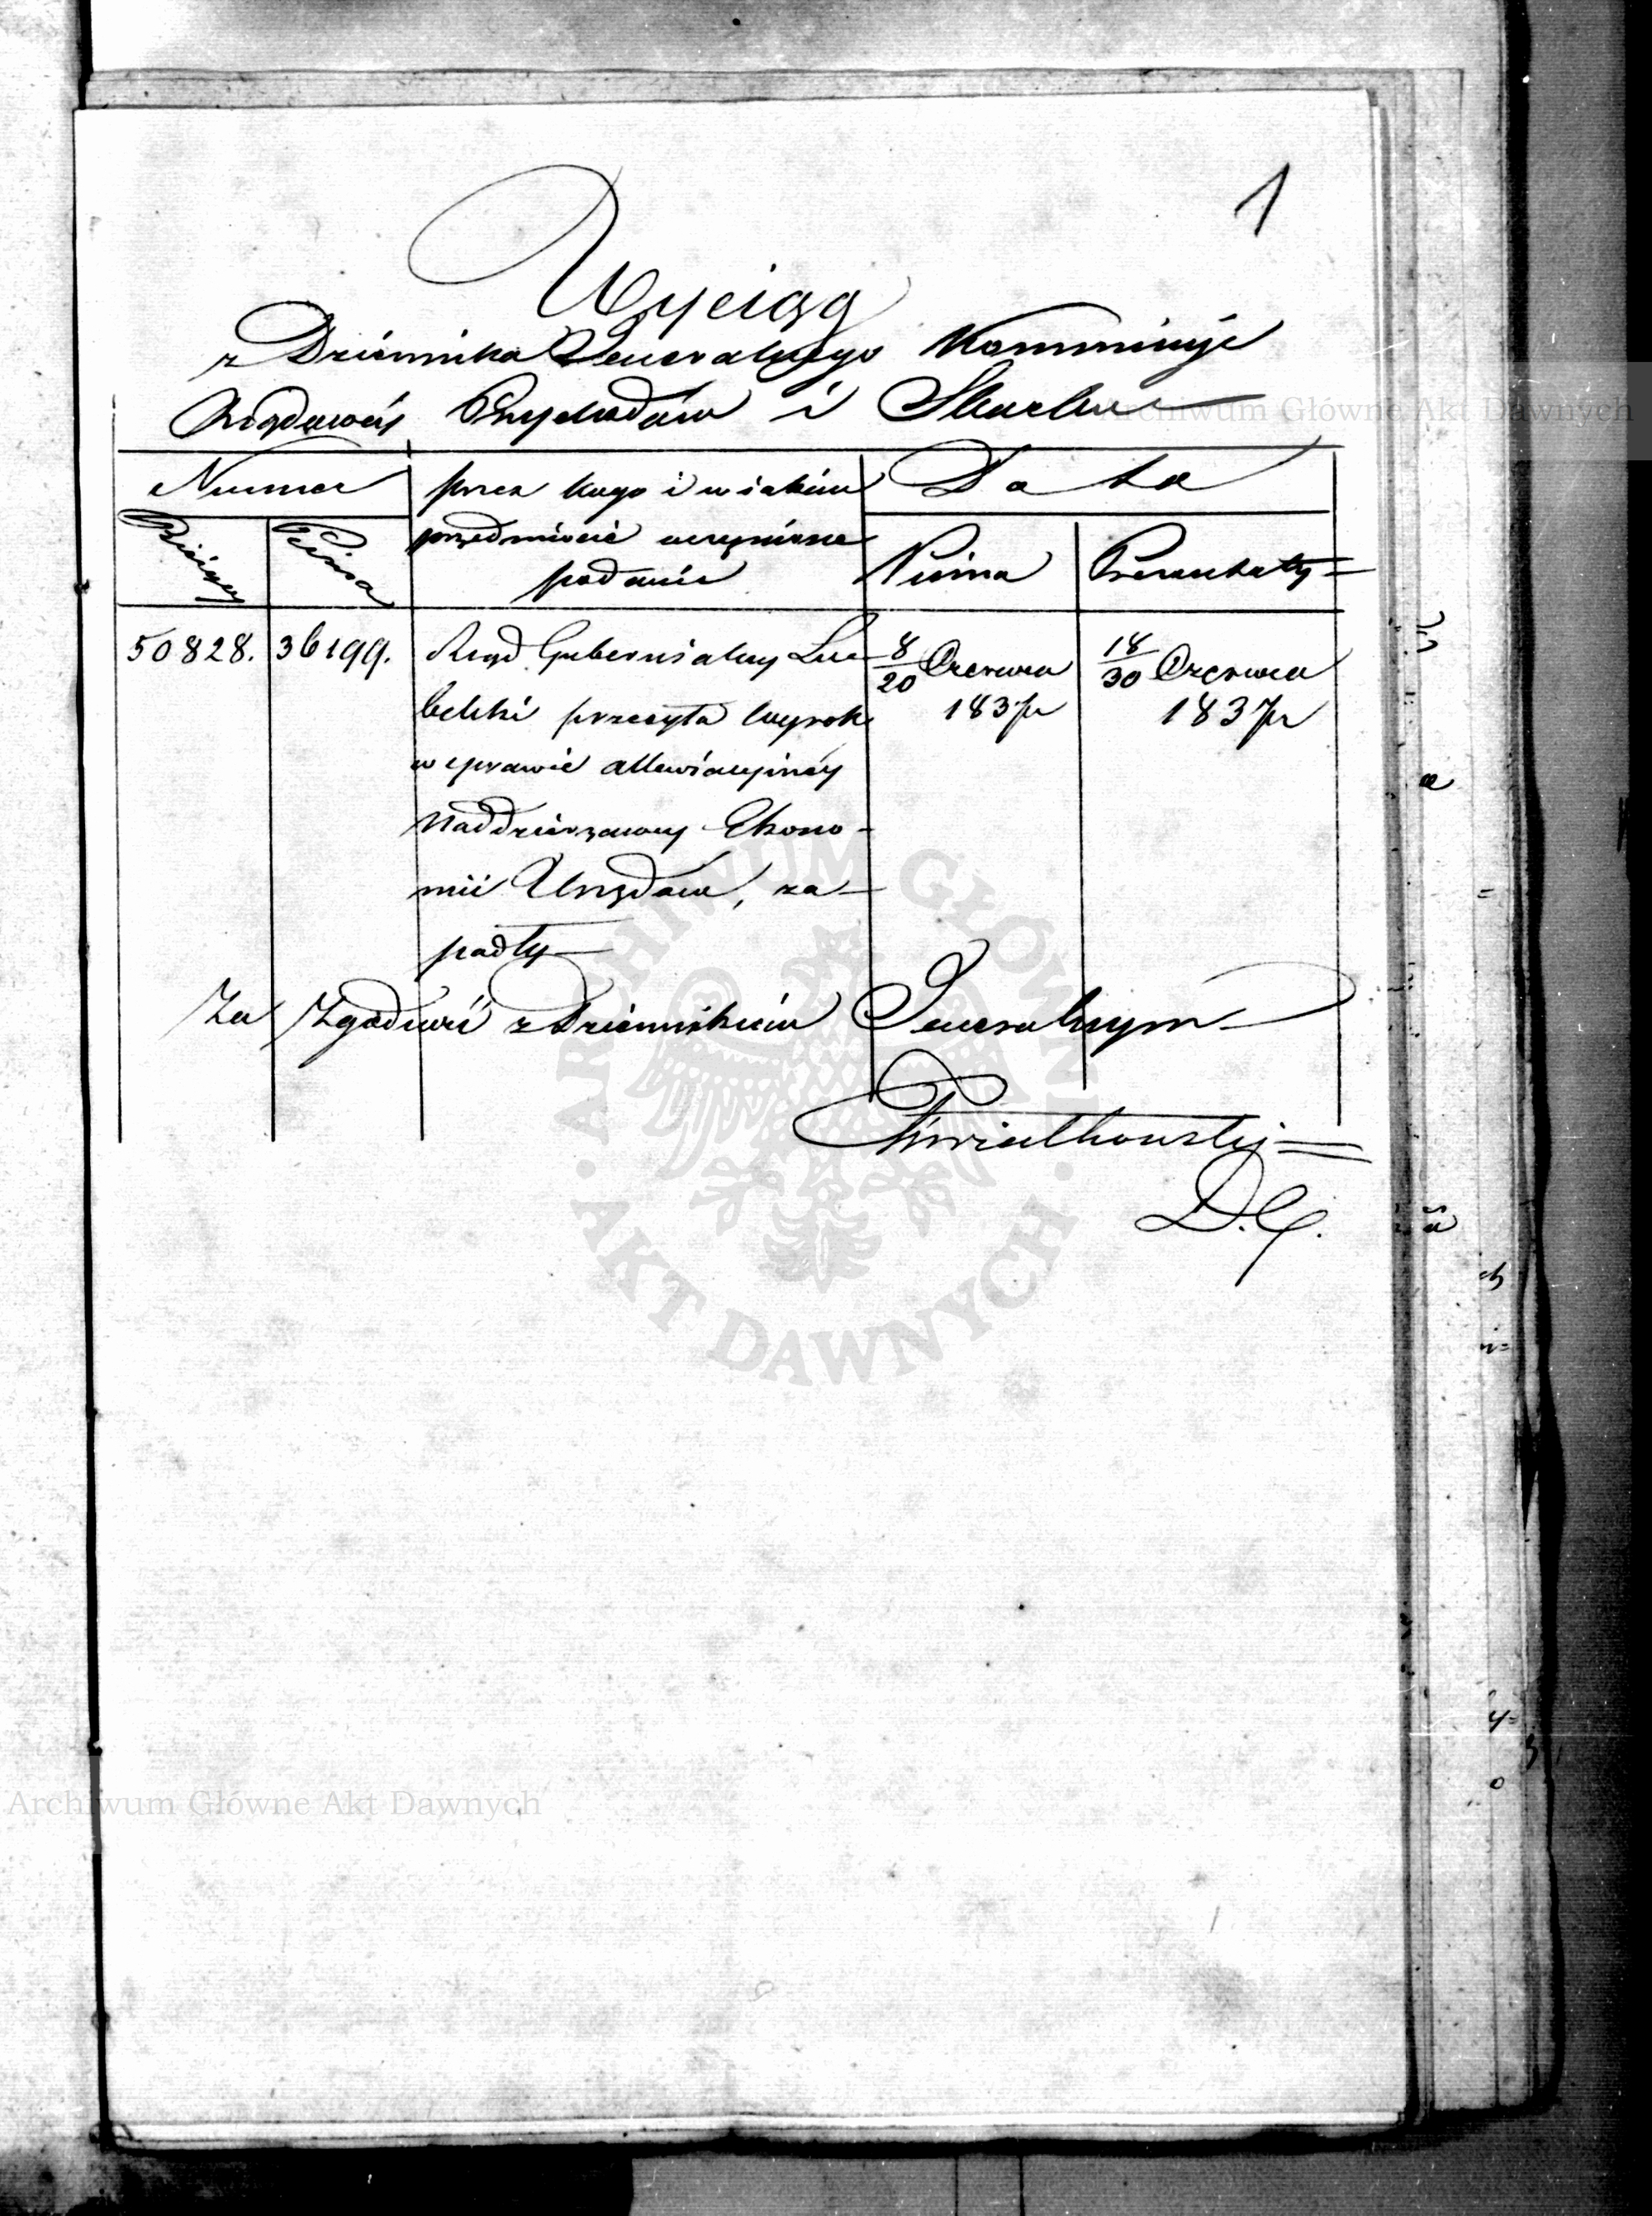 1
Wyciąg
z Dziennika Generalnego Kommissyi
Rządowéy Przychodów i Skarbu
Numer
przez kogo i w jakim
Data
Bieżący
Pisma
przedmiocie uczynione
podanie
Pisma
Prezentaty
50828.
36199.
Rząd Gubernialny Lu-
8/20 Czerwca
18/30 Czerwca
belski przesyła wyrok
1837 r
1837 r
w sprawie allewiacyinéy
Naddzierżawcy Ekono-
mii Urzędów, za-
padły
Za Zgodność z Dziennikiem Generalnym
Kwiatkowski
D. G.
Archiwum Główne Akt Dawnych
ARCHIWUM GŁÓWNE
AKT DAWNYCH
Archiwum Główne Akt Dawnych